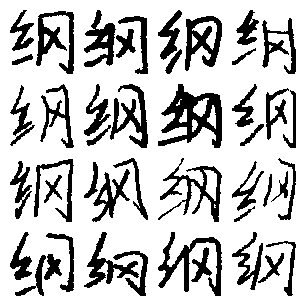 纲纲纲纲
纲纲纲纲
纲纲纲纲
纲纲纲纲